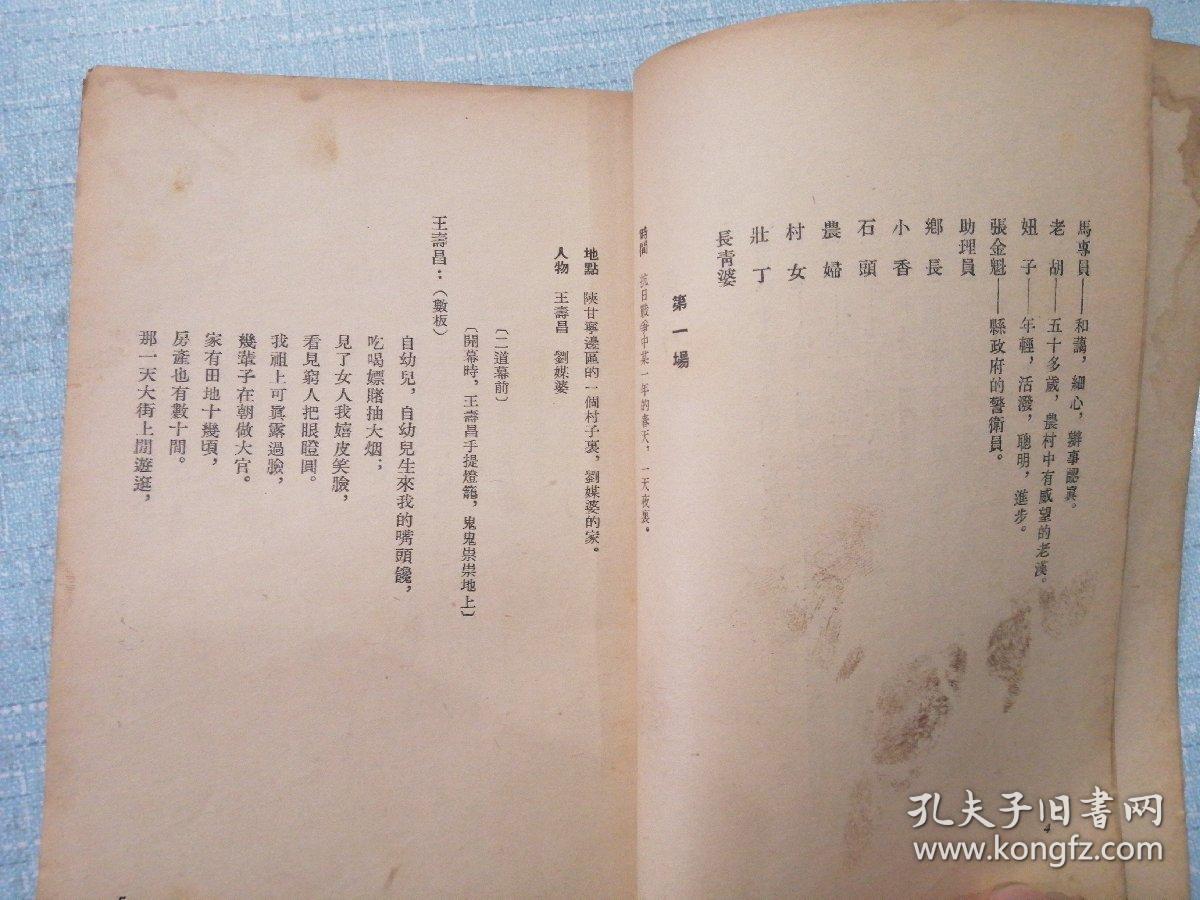 馬專員——和藹，細心，辦事認真。
老　胡——五十多歲，農村中有威望的老漢。
妞　子——年輕，活潑，聰明，進步。
張金魁——縣政府的警衛員。
助理員
鄉　長
小　香
石　頭
農　婦
村　女
壯　丁
長青婆
第一場
時間　抗日戰爭中某一年的春天，一天夜裏。
4
地點　陝甘寧邊區的一個村子裏，劉媒婆的家。
人物　王壽昌　劉媒婆
〔二道幕前〕
〔開幕時，王壽昌手提燈籠，鬼鬼祟祟地上〕
王壽昌：（數板）
自幼兒，自幼兒生來我的嘴頭饞，
吃喝嫖賭抽大烟；
見了女人我嬉皮笑臉，
看見窮人把眼瞪圓。
我祖上可眞露過臉，
幾輩子在朝做大官。
家有田地十幾頃，
房產也有數十間。
那一天大街上閒遊逛，
5
孔夫子旧书网
www.kongfz.com